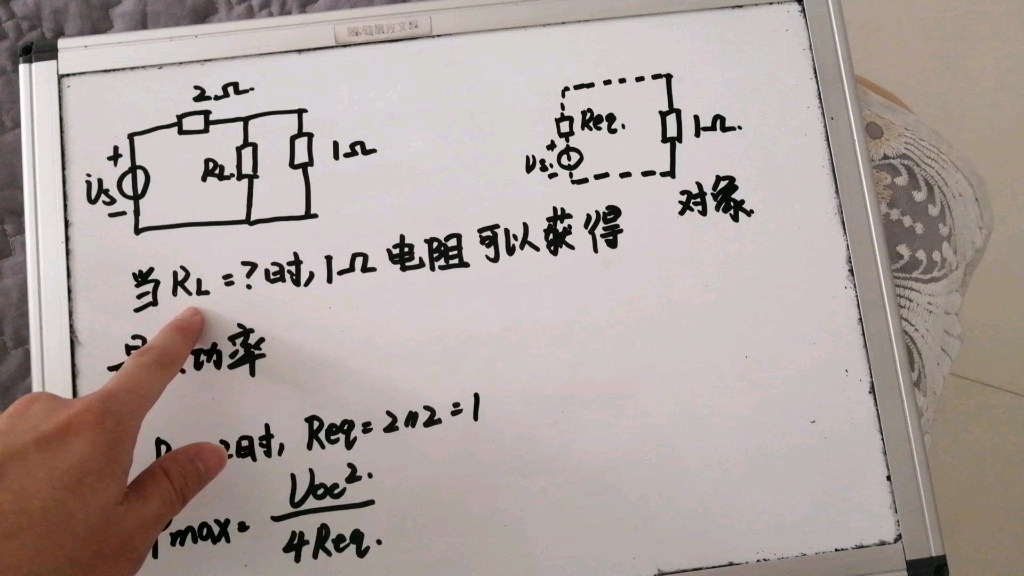 2Ω
RL
1Ω
+
Us
-
Req.
+
Us.
-
1Ω.
对象
当RL=?时,1Ω电阻可以获得
功率
2时, Req=2//2=1
Pmax=
Uoc².
4Req.